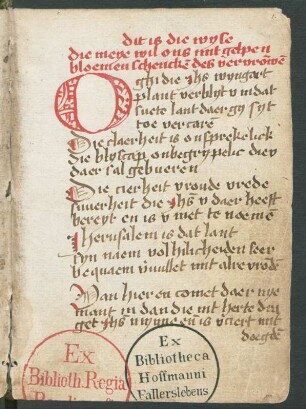 dit is die wyse
die meye wil ons mit gelpen
bloemen schencken des vervrowen
O ghi die ihs wyngart
plant verblyt v in dat
suete lant daer gy syt
toe vercaren
Die claerheit is onsprekelick
die blyscap onbegrypelic die v
daer sal gebueren
Die cierheit vroude vrede
suuerheit die ihs v daer heeft
bereyt en is v met te noemen
Jherusalem is dat lant
syn naem vol hilicheiden seer
bequaem vuullet mit alre vroude
Van hier en comet daer nye
mant in dan die mit herte
ihs mynne en is verciert mit
doegden
Ex
Biblioth. Regia
Ex
Bibliotheca
Hoffmanni
Fallerslebens